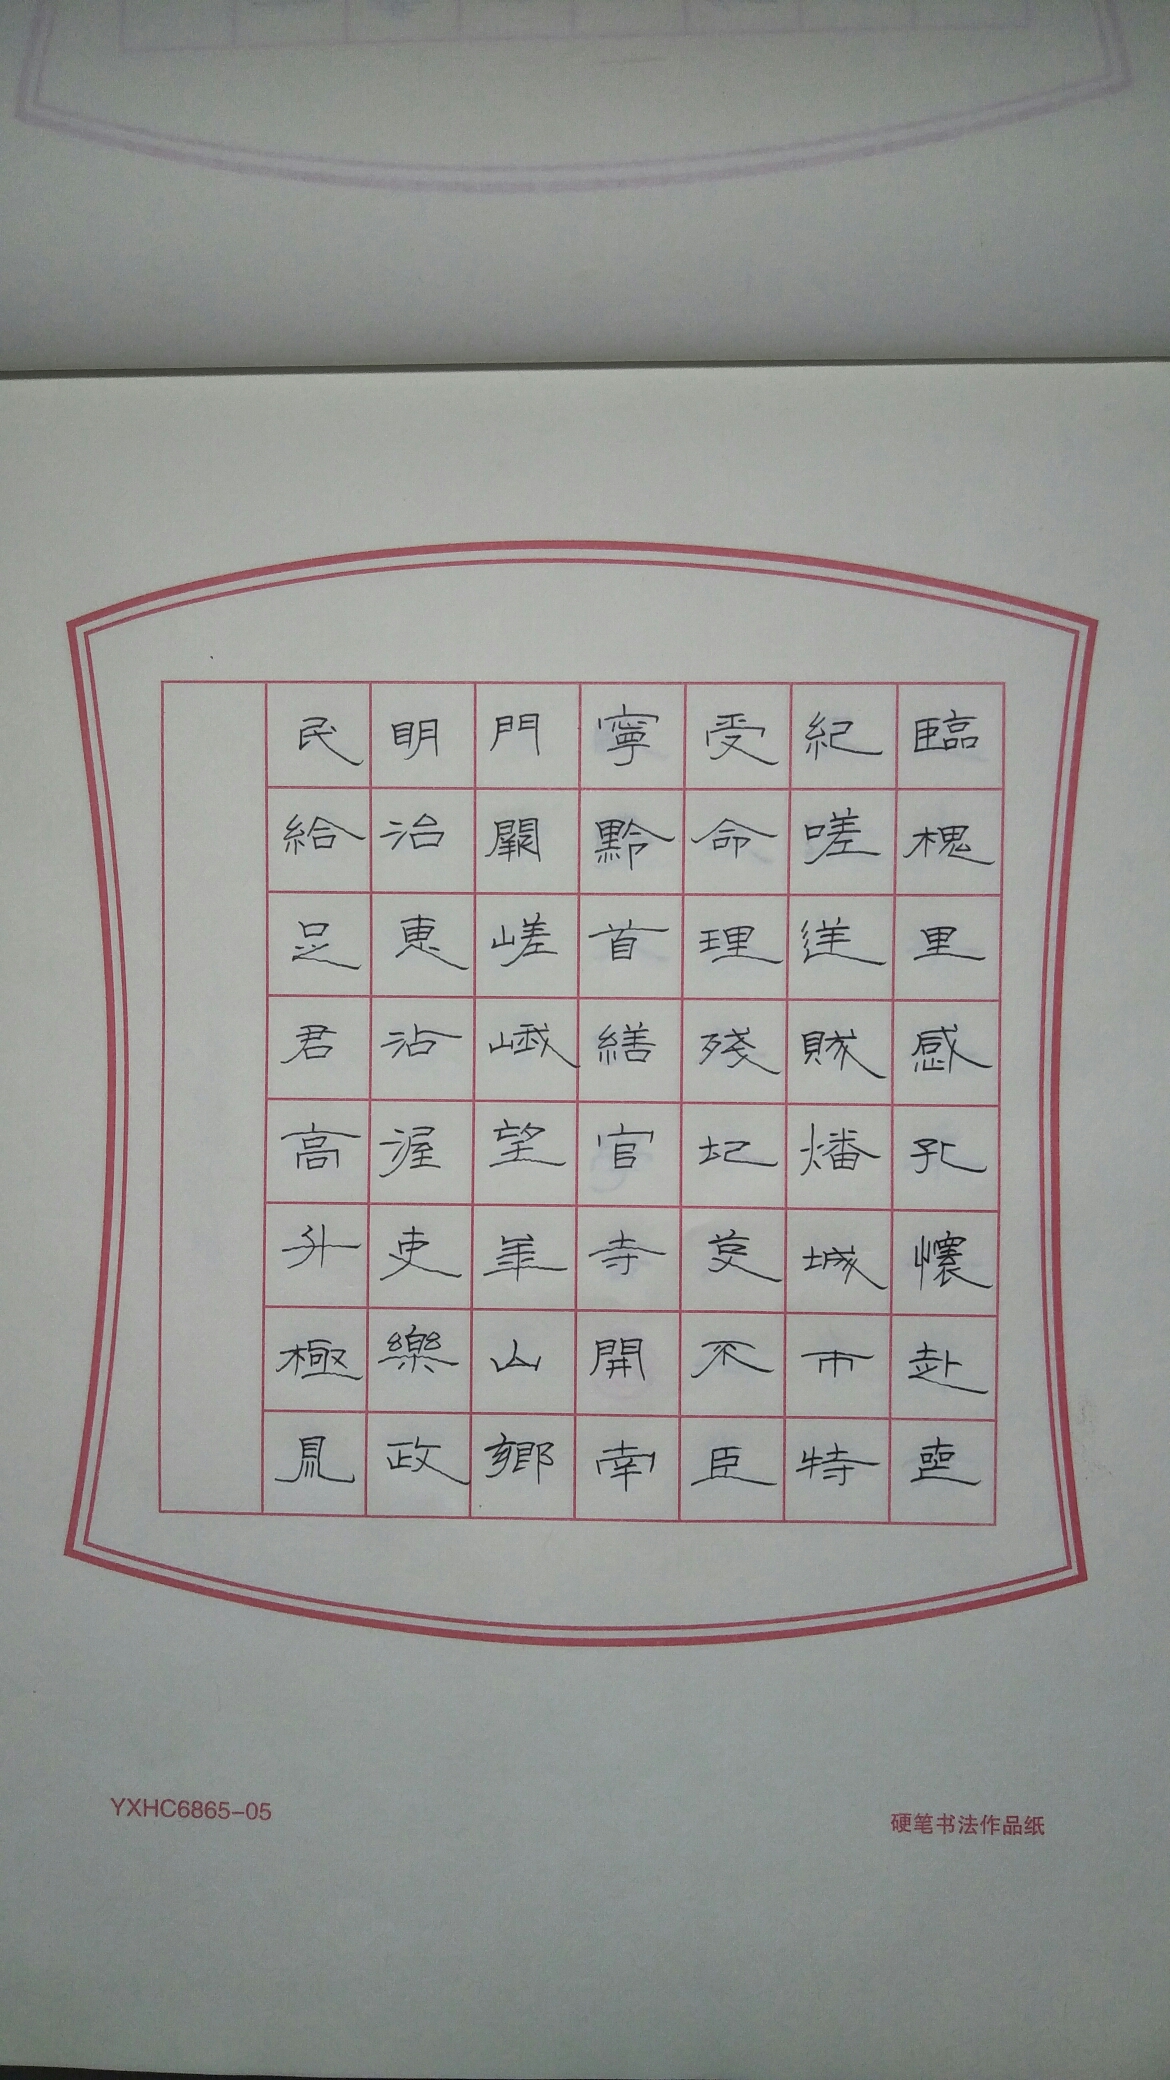 臨槐里感孔懷赴喪
紀嗟逆賊燔城市特
受命理殘圮芟不臣
寧黔首繕官寺開南
門闕嵯峨望華山鄉
明治惠沾渥吏樂政
民給足君高升極鼎
YXHC6865-05
硬笔书法作品纸